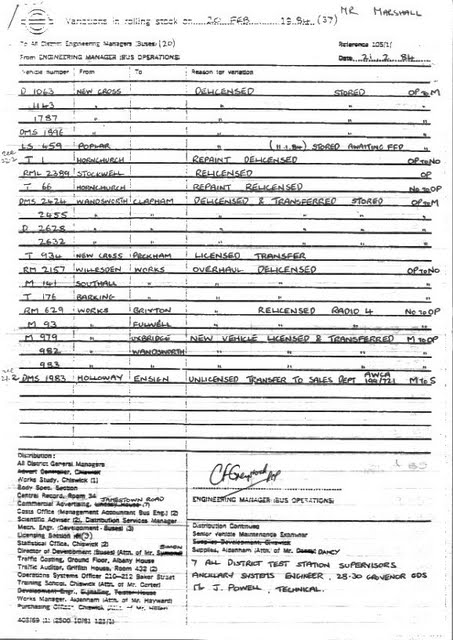 MR MARSHALL
Variations in rolling stock on 20 FEB 1984 (37)
To All District Engineering Managers (Buses) (20) Reference 105/1/
From ENGINEERING MANAGER (BUS OPERATIONS) Date 21.2.84
Vehicle number From To Reason for variation
D 1063 NEW CROSS DELICENSED STORED OP TO M
1143 " " "
1787 " " "
DMS 1896 " " "
LS 459 POPLAR " (11.1.84) STORED AWAITING FFD
T 1 HORNCHURCH REPAINT DELICENSED OP TO NO
RML 2389 STOCKWELL RELICENSED OP
T 66 HORNCHURCH REPAINT RELICENSED NO TO OP
DMS 2424 WANDSWORTH CLAPHAM DELICENSED & TRANSFERRED STORED OP TO M
2455 " " " " "
D 2628 " " " " "
2632 " " " " "
T 934 NEW CROSS PECKHAM LICENSED TRANSFER
RM 2157 WILLESDEN WORKS OVERHAUL DELICENSED OP TO NO
M 141 SOUTHALL " " "
T 176 BARKING " " "
RM 629 WORKS BRIXTON " RELICENSED RADIO 4 NO TO OP
M 93 " FULWELL " "
M 979 " UXBRIDGE NEW VEHICLE LICENSED & TRANSFERRED M TO OP
982 " WANDSWORTH " " "
983 " " " " "
DMS 1983 HOLLOWAY ENSIGN UNLICENSED TRANSFER TO SALES DEPT AWCA 199/721 M TO S
Distribution:
All District General Managers
Works Study, Chiswick (1)
Body Spec. Section
Central Record, Room 34 JAMESTOWN ROAD
Commercial Advertising, (7)
Costs Office (Management Accountant Bus Eng.) (2)
Scientific Adviser (2), Distribution Services Manager
Mech. Engr. (Development - Buses) (3)
Licensing Section
Statistical Office, Chiswick (2)
Director of Development (Buses) (Attn. of Mr.
Traffic Costing, Ground Floor, Albany House
Traffic Auditor, Griffith House, Room 432 (2)
Operations Systems Officer 210-212 Baker Street
Training School, Chiswick (Attn. of Mr. Carter)
Works Manager, Aldenham (Attn. of Mr. Hayward)
Purchasing Officer, Chiswick (Attn. of Mr.
ENGINEERING MANAGER (BUS OPERATIONS)
Distribution Continued
Senior Vehicle Maintenance Examiner
Supplies, Aldenham (Attn. of Mr. DANCY)
7 ALL DISTRICT TEST STATION SUPERVISORS
ANCILLARY SYSTEMS ENGINEER, 28-30 GROVENOR GDS
J. POWELL, TECHNICAL.